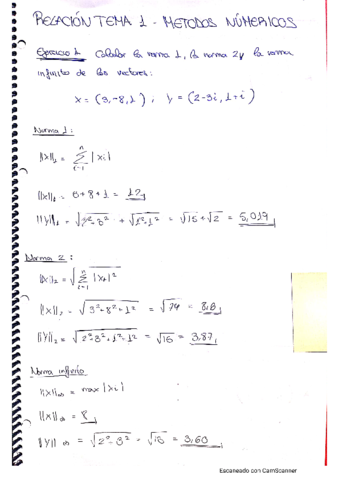 RELACIÓN TEMA 1 - METODOS NÚMERICOS
Ejercicio 1. Calcular la norma 1, la norma 2 y la norma
infinito de los vectores:
x = (3,-8,1) , y = (2-3i, 1+i)
Norma 1:
||x||₁ = Σ |xi|
||x||₁ = 3+8+1 = 12
||y||₁ = √2²+3² + √1²+1² = √13 + √2 = 5,019
Norma 2:
||x||₂ = √Σ |xi|²
||x||₂ = √3²+8²+1² = √74 = 8,6
||y||₂ = √2²+3²+1²+1² = √15 = 3,87
Norma infinito
||x||∞ = max |xi|
||x||∞ = 8
||y||∞ = √2²+3² = √13 = 3,60
Escaneado con CamScanner